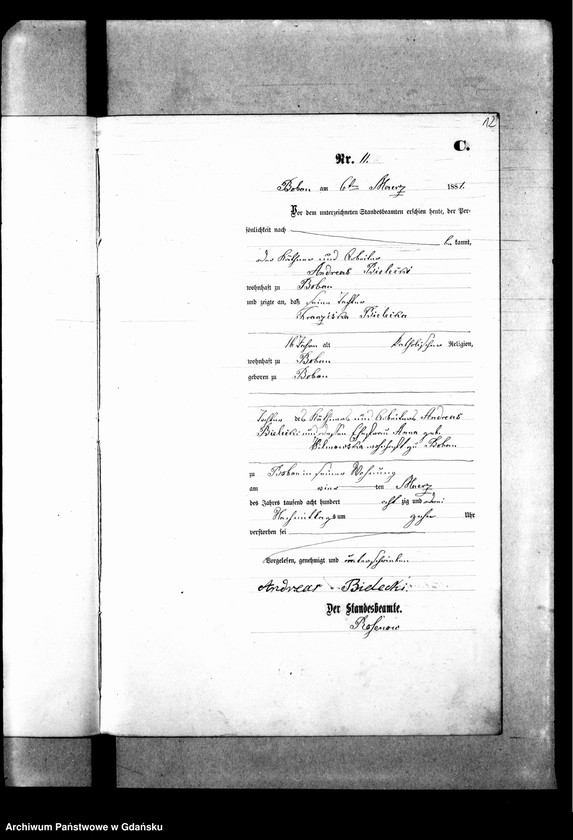 12
C.
Nr. 11.
Boban am 6ten Maerz 1881.
Vor dem unterzeichneten Standesbeamten erschien heute, der Per-
sönlichkeit nach
be kannt,
der Käthner und Arbeiter
Andreas Bielecki
wohnhaft zu Boban
und zeigte an, daß seine Tochter
Franziska Bielecka
16 Jahre alt katholischer Religion,
wohnhaft zu Boban
geboren zu Boban
Tochter des Käthners und Arbeiters Andreas
Bielecki und dessen Ehefrau Anna geb.
wohnhaft zu Boban
zu Boban in seiner Wohnung
am ten Maerz
des Jahres tausend acht hundert acht zig und
Nachmittags um Uhr
verstorben sei
Vorgelesen, genehmigt und unterschrieben
Andreas Bielecki.
Der Standesbeamte.
Rosenow
Archiwum Państwowe w Gdańsku